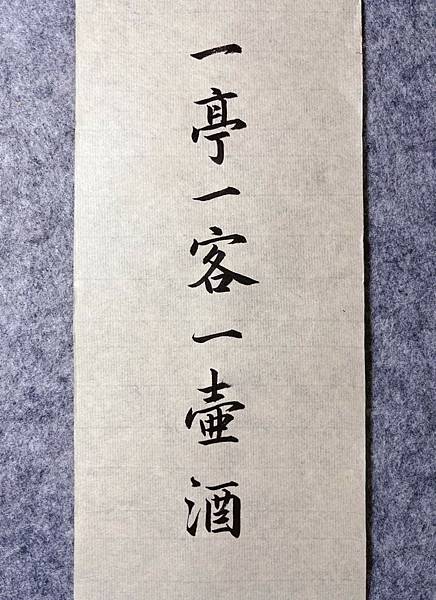 一亭一客一壷酒